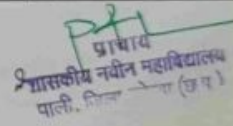 प्राचार्य
शासकीय नवीन महाविद्यालय
पाली, (छ.ग.)